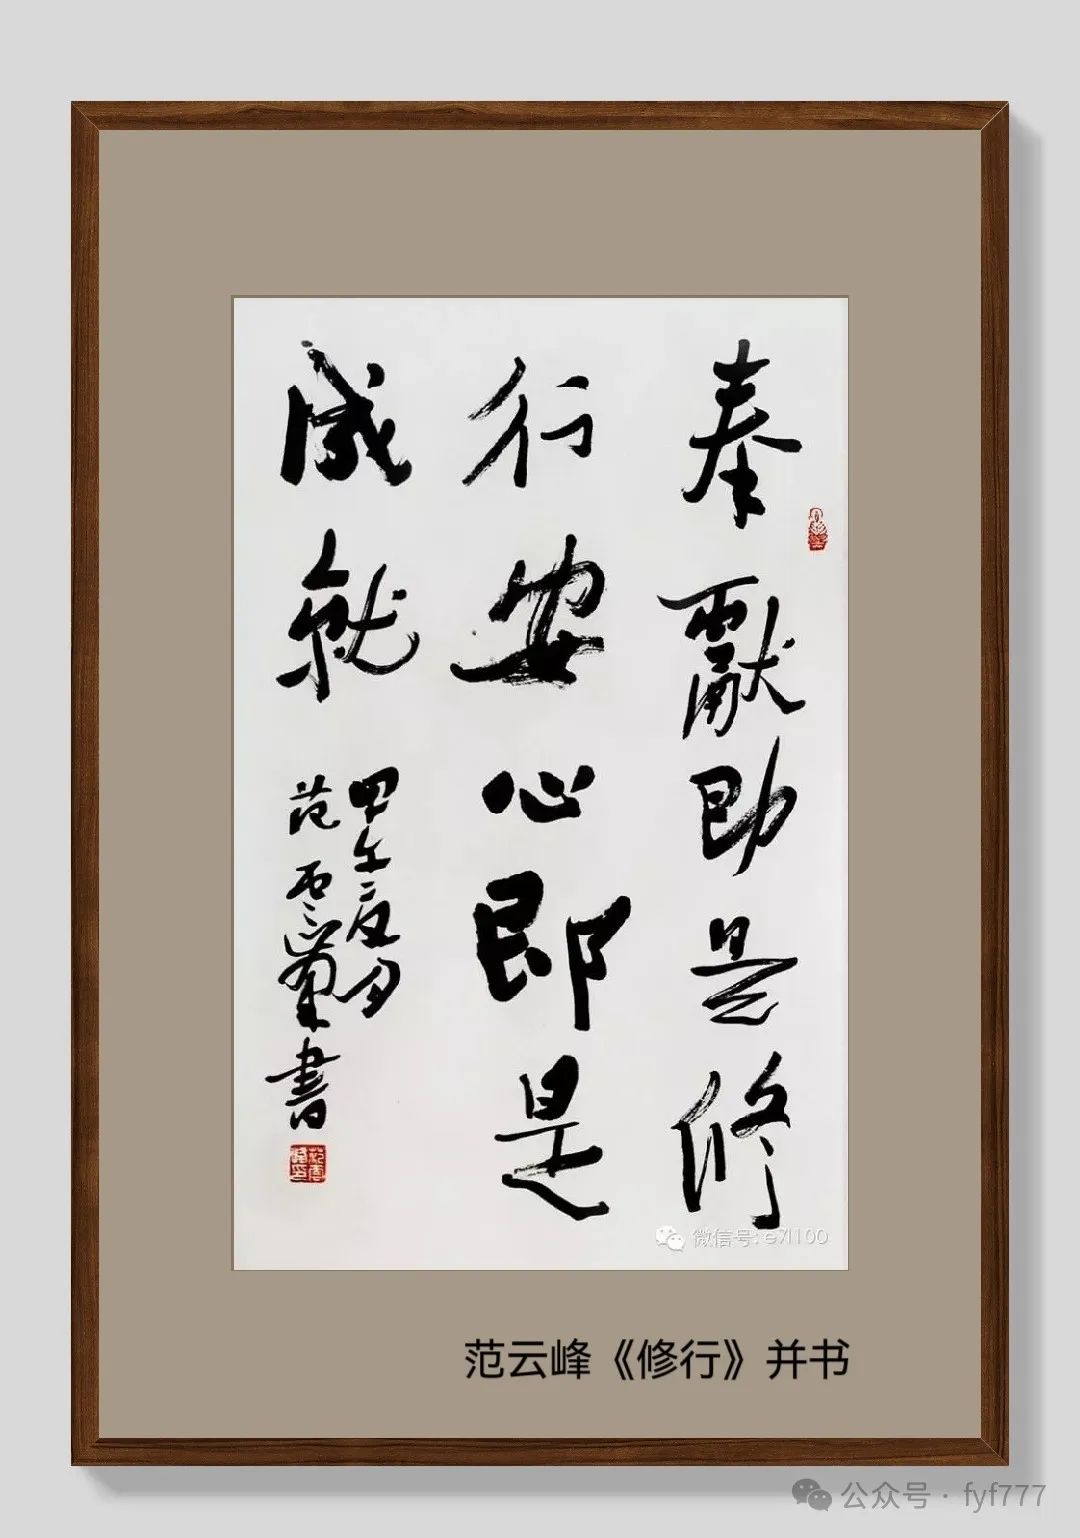 奉獻即是修
行安心即是
成就
甲午夏月
范雲峯書
微信号:
范云峰《修行》并书
公众号 · fyf777